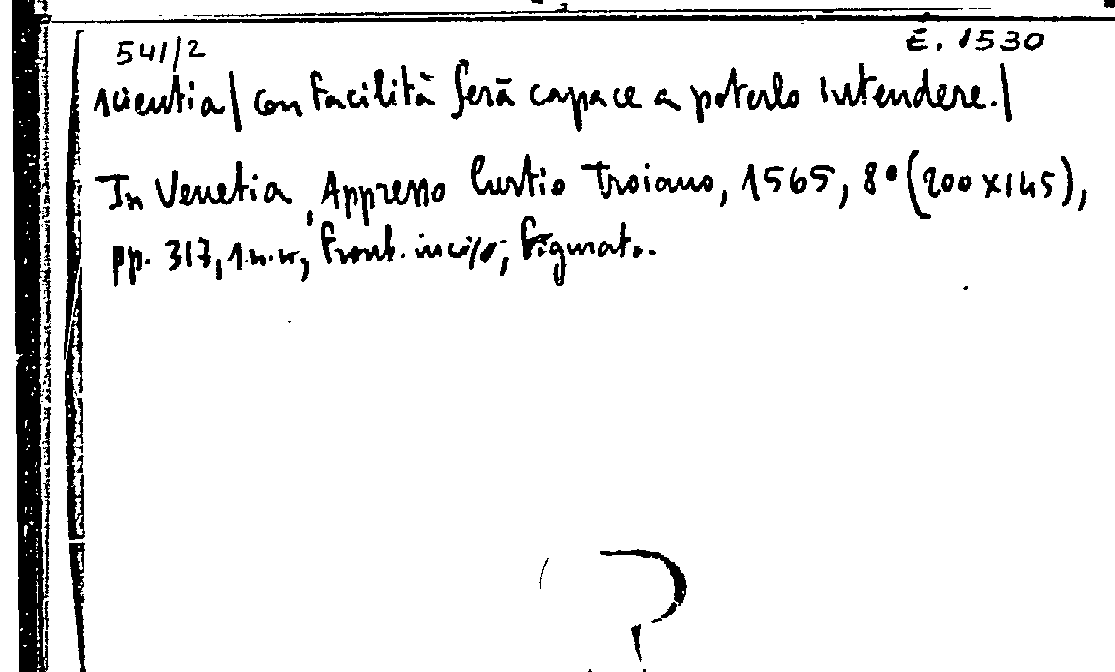 541/2 E. 1530
scientia| con facilità serà capace a poterlo intendere.|
In Venetia, Appresso Curtio Troiano, 1565, 8° (200x145),
pp. 317, 1 n.n., front. inciso, figurato.